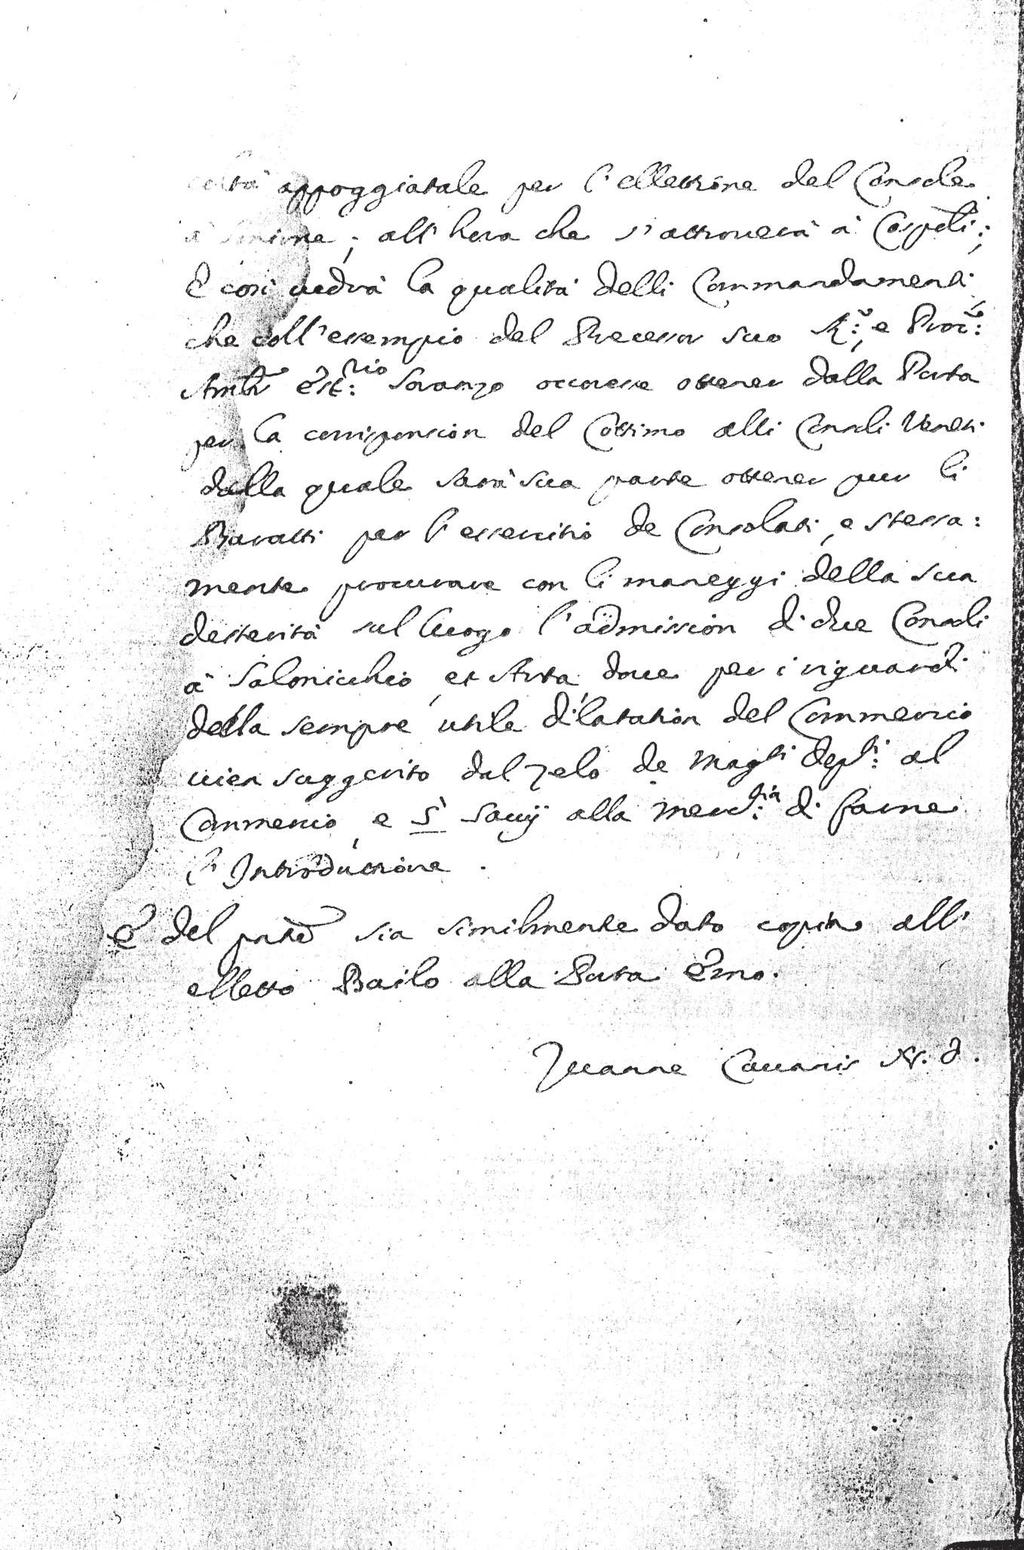 coltà appoggiatale per l'ellettione del Console
à Smirne; all'hora che s'attrouerà à Cospoli;
E così uedrà la qualità delli Commandamenti
che coll'essempio del Precessor suo K.r e Proc.r:
Amb.r Est.rio Soranzo occoresse ottener dalla Porta
per la corrisponsion del Cottimo alli Consoli Veneti
dalla quale sarà sua parte ottener pur li
Baratti per l'essercitio de Consolati, e stessa:
mente procurare con li maneggi della sua
desterità sul luogo l'admission di due Consoli
à Salonicchio, et Arta, doue per i riguardi
della sempre utile dilatation del Commercio
uien suggerito dal zelo de Mag.ti Dep.ti: al
Commercio, e 5 Sauij alla Merc.tia: di farne
l'Introduttione.
E del pnte sia similmente dato copia all'
elletto Bailo alla Porta Emo.
Zuanne Cauanis N. D.